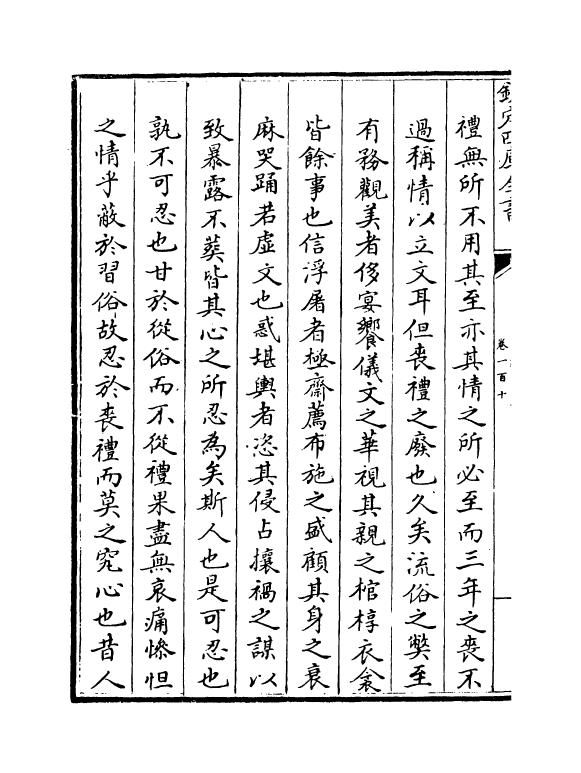 欽定四庫全書
卷一百十
禮無所不用其至亦其情之所必至而三年之喪不
過稱情以立文耳但喪禮之廢也久矣流俗之弊至
有務觀美者侈宴饗儀文之華視其親之棺椁衣衾
皆餘事也信浮屠者極齋薦布施之盛顧其身之衰
麻哭踊若虛文也惑堪輿者恣其侵占攘禍之謀以
致暴露不葬皆其心之所忍為矣斯人也是可忍也
孰不可忍也甘於從俗而不從禮果盡無哀痛慘怛
之情乎蔽於習俗故忍於喪禮而莫之究心也昔人